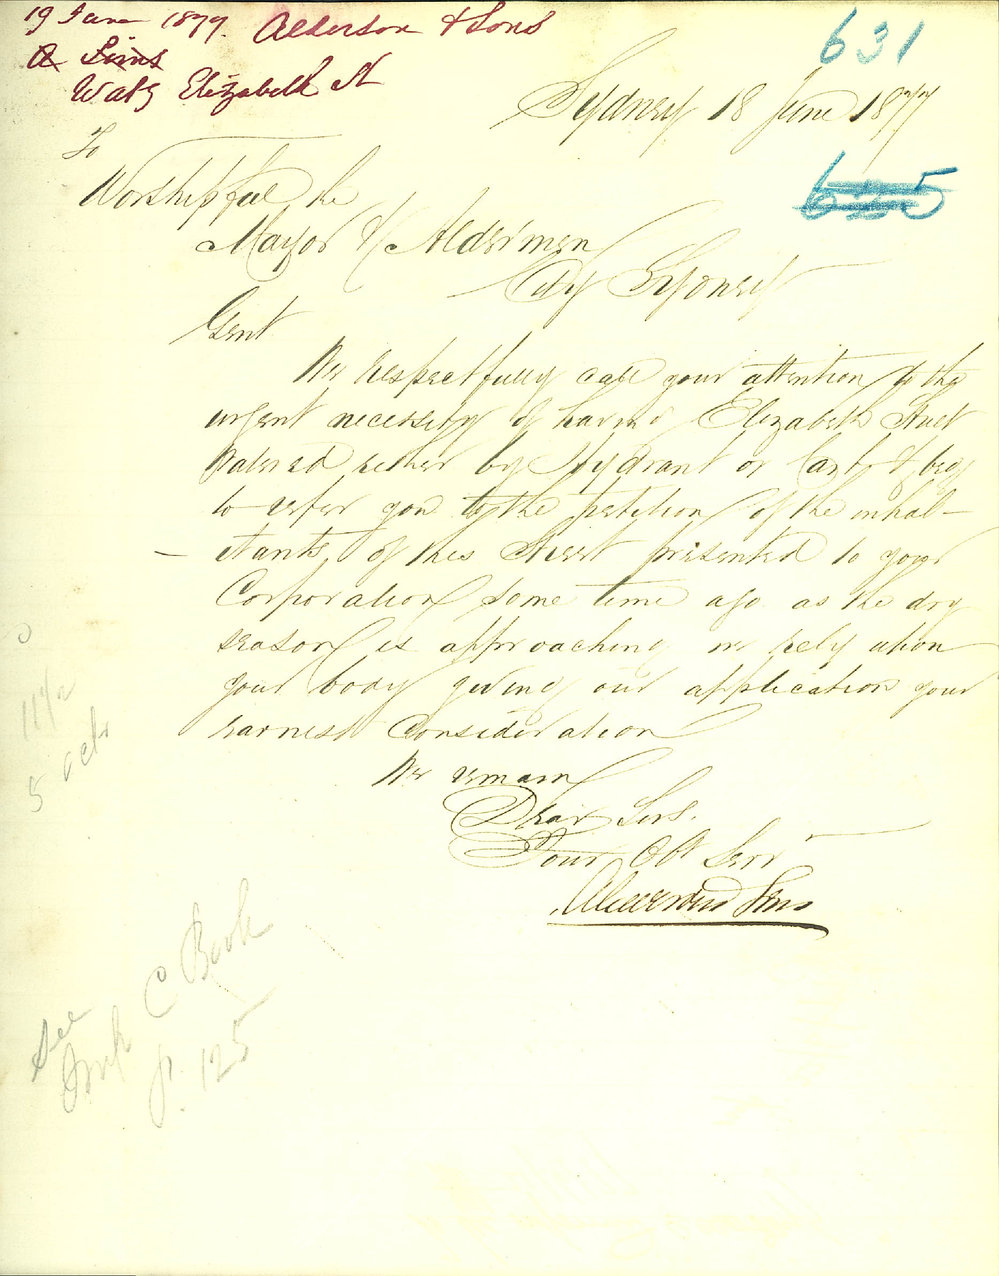 19 June 1877. Alderson & Sons
& Sims
Watg Elizabeth St
631
Sydney 18 June 1877
625
To
Worshipful the
Mayor & Aldermen
City Sydney
Gent
We respectfully call your attention to the
urgent necessity of having Elizabeth Street
Watered either by Hydrant or Carts & beg
to refer you to the petition of the inhab-
itants of this Street presented to your
Corporation some time ago as the dry
season is approaching we rely upon
your body giving our application your
earnest consideration
We remain
Dear Sirs.
Your Obt Servt
Alderson & Sons
11 1/2
5
See
C Book
p. 125